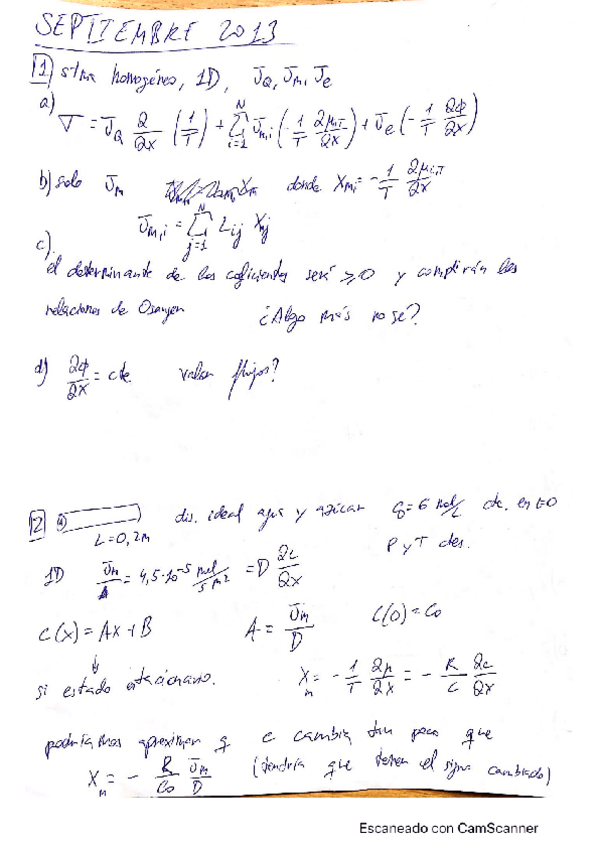 SEPTIEMBRE 2013
1) stma homogéneo, 1D, J_Q, J_m, J_e
a) σ = J_Q ∂/∂x (1/T) + Σ_{i=1}^{N} J_{m,i} (-1/T ∂μ_{i,T}/∂x) + J_e (-1/T ∂φ/∂x)
b) solo J_m donde X_{m,i} = -1/T ∂μ_{i,T}/∂x
J_{m,i} = Σ_{j=1}^{N} L_{ij} X_{mj}
c)
el determinante de los coficientes será ≥0 y complirán las
relaciones de Osanger ¿Algo más no sé?
d) ∂φ/∂x = cte. valor flujos?
2 a) dis. ideal agua y azúcar = 6 mol/L cte. en t=0
L = 0,2m P y T
1D J_m/A = 4,5·10^-5 mol/s m² = D ∂c/∂x
C(x) = Ax + B A = J_m/D C(0) = C_0
si estado estacionario. X_m = -1/T ∂μ/∂x = -R/C ∂c/∂x
podríamos aproximar q c cambia tan poco que
X_m = -R/C_0 J_m/D (tendría que tener el signo cambiado)
Escaneado con CamScanner